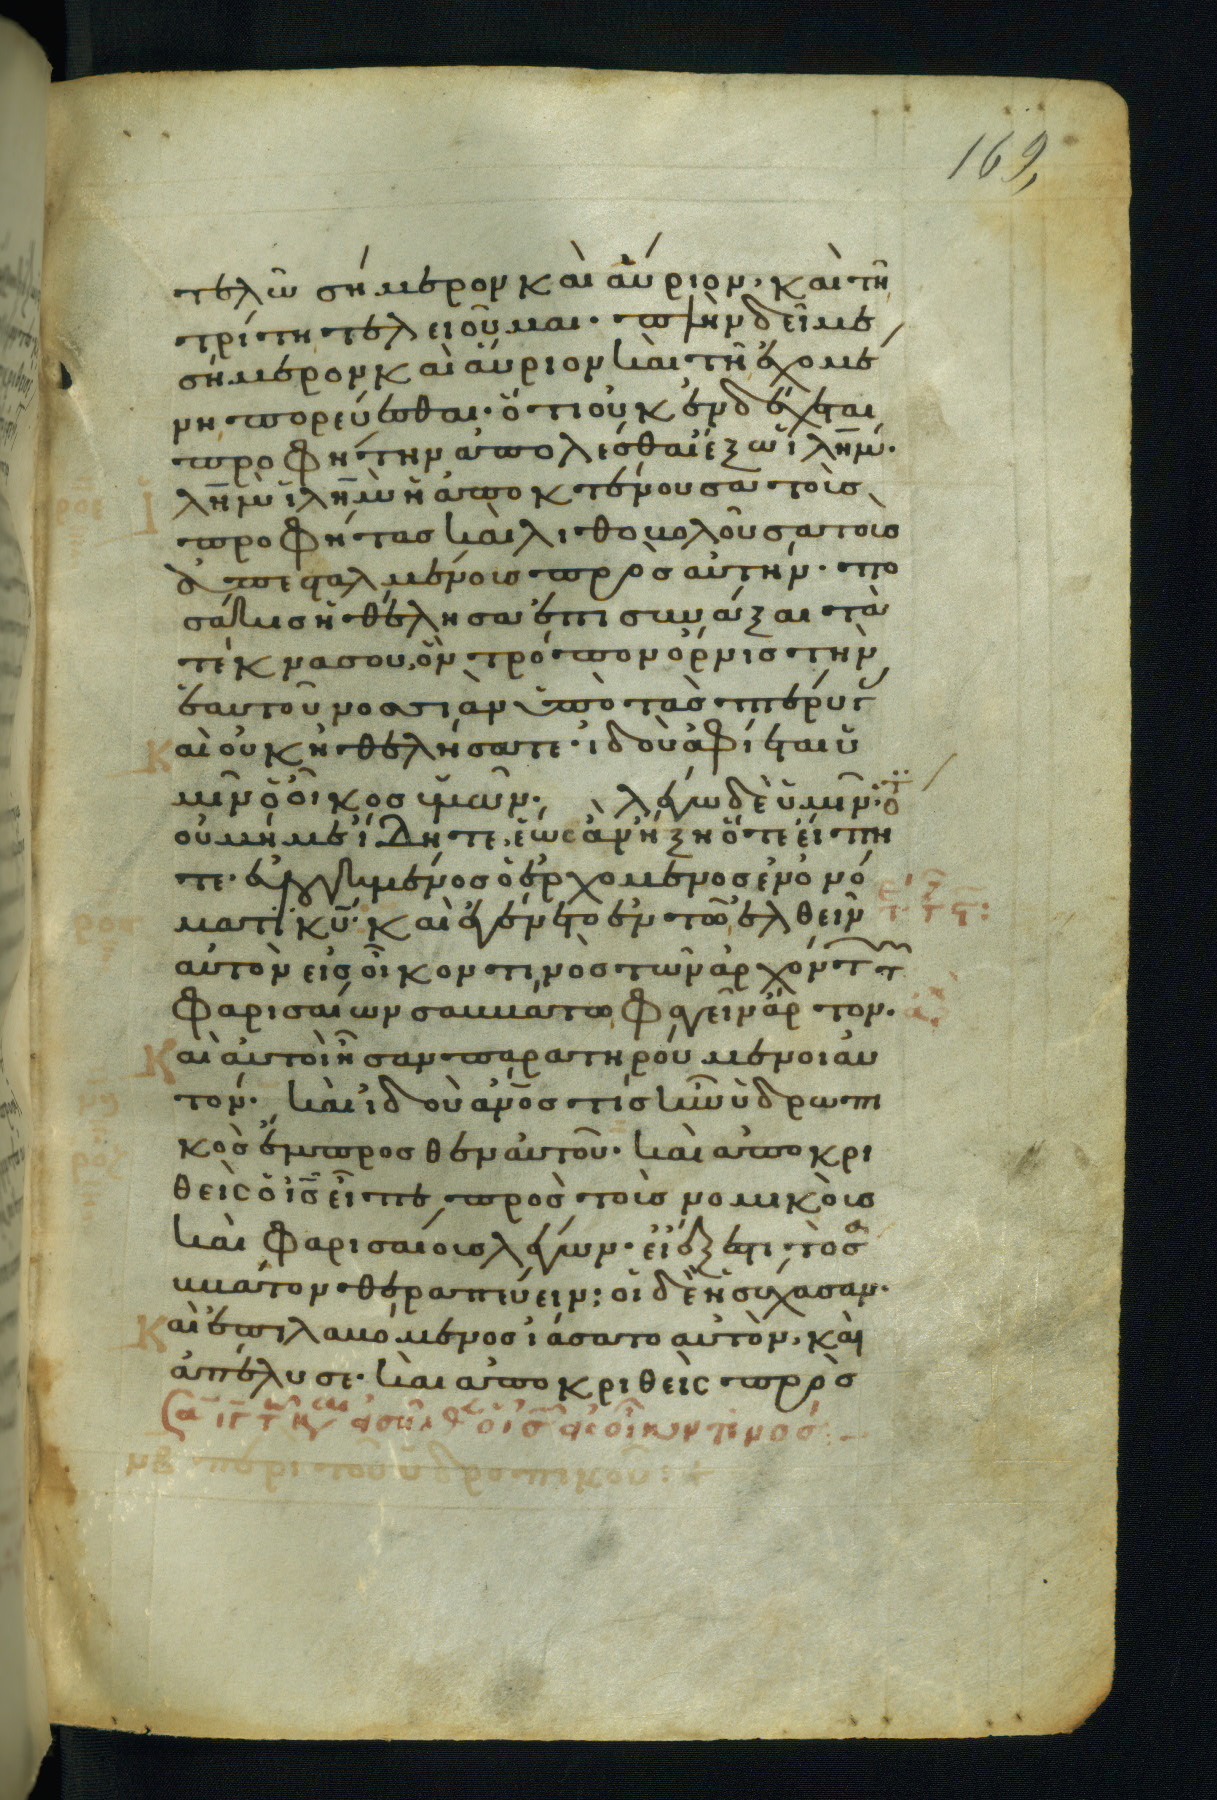 169,
τελῶ σήμερον καὶ αὔριον, καὶ τῆ
τρίτη τελειοῦμαι. πλὴν δεῖ με
σήμερον καὶ αὔριον καὶ τῆ ἐχομέ
νη πορεύεσθαι. ὅτι οὐκ ἐνδέχεται
προφήτην ἀπολέσθαι ἔξω ἰλημ̄.
ἰλημ̄ ἰλημ̄ ἡ ἀποκτένουσα τοὺς
προφήτας καὶ λιθοβολοῦσα τοὺς
ἀπεσταλμένους πρὸς αὐτήν. πο
σάκις ἠθέλησα ἐπισυνάξαι τὰ
τέκνα σου, ὃν τρόπον ὄρνις τὴν
ἑαυτοῦ νοσσιὰν ὑπὸ τὰς πτέρυγ
Καὶ οὐκ ἠθελήσατε. ἰδοὺ ἀφίεται ὑ
μῖν ὁ οἶκος ὑμῶν. λέγω δὲ ὑμῖν. ὅτ
οὐ μή με ἴδητε, ἕως ἂν ἥξη ὅτε εἴπη
τε. εὐλογημένος ὁ ἐρχόμενος ἐν ὀνό
ματι κῡ. καὶ ἐγένετο ἐν τῶ ἐλθεῖν
αὐτὸν εἰς οἶκον τινὸς τῶν ἀρχόντ τ
φαρισαίων σαββάτω φαγεῖν ἄρτον.
Καὶ αὐτοὶ ἦσαν παρατηρούμενοι αὐ
τόν. καὶ ἰδοὺ ἄνος τίς ἦν ὑδρωπι
κὸς ἔμπροσθεν αὐτοῦ. καὶ ἀποκρι
θεὶς ὁ ις̄ εἶπε πρὸς τοὺς νομικοὺς
καὶ φαρισαίους λέγων. εἰ ἔξεστι τὸ σα
ββάτον θεραπεύειν; οἱ δὲ ἡσύχασαν.
Καὶ ἐπιλαβόμενος ἰάσατο αὐτόν, καὶ
ἀπέλυσε. καὶ ἀποκριθεὶς πρὸς
εἰσῆλθεν ὁ ις̄ εἰς οἶκόν τινος
μβ περὶ τοῦ ὑδροπικοῦ:+